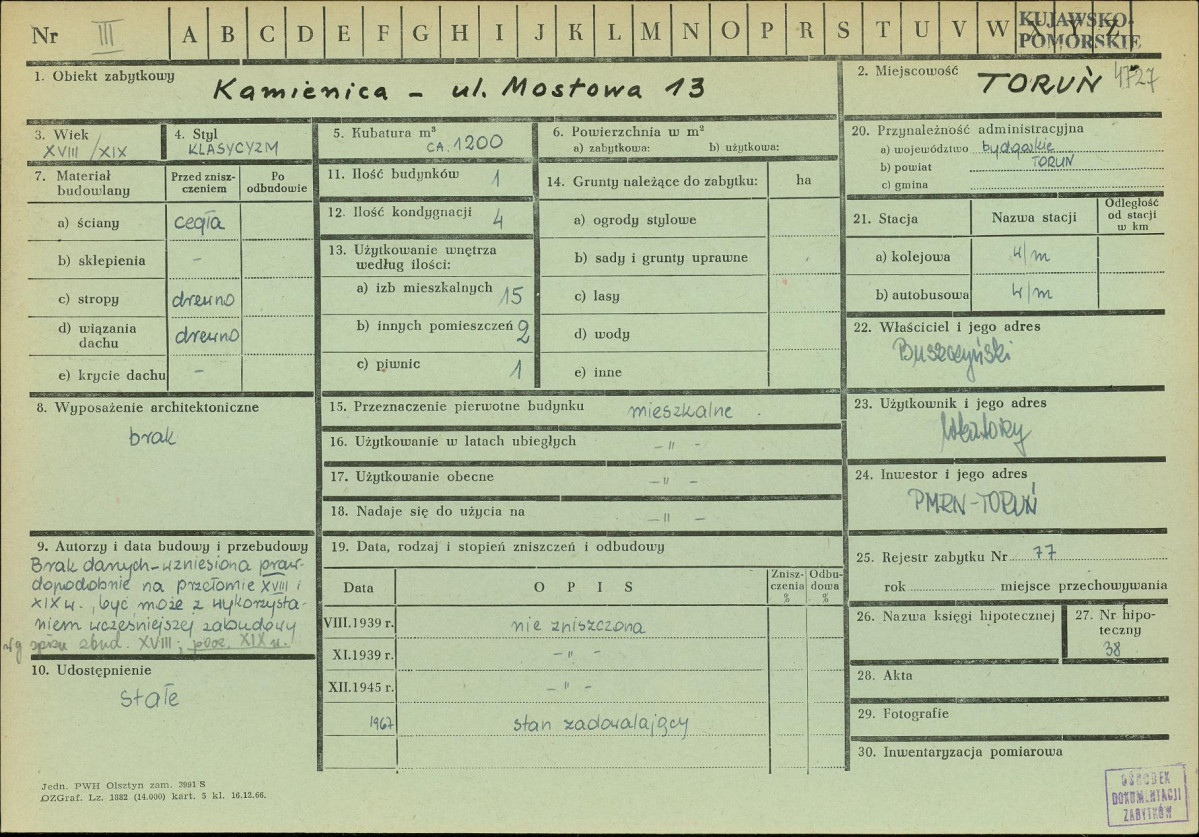 Nr III A B C D E F G H I J K L M N O P R S T U V W X Y Z
KUJAWSKO-
POMORSKIE
1. Obiekt zabytkowy
Kamienica – ul. Mostowa 13
2. Miejscowość
TORUŃ 4727
3. Wiek
XVIII/XIX
4. Styl
KLASYCYZM
5. Kubatura m³
CA. 1200
6. Powierzchnia w m²
a) zabytkowa: b) użytkowa:
7. Materiał
budowlany
Przed znisz-
czeniem
Po
odbudowie
a) ściany cegła
b) sklepienia –
c) stropy drewno
d) wiązania
dachu drewno
e) krycie dachu –
8. Wyposażenie architektoniczne
brak
9. Autorzy i data budowy i przebudowy
Brak danych – wzniesiona praw-
dopodobnie na przełomie XVIII i
XIX w., być może z wykorzysta-
niem wcześniejszej zabudowy
wg spisu zbud. XVIII; przeb. XIX w.
10. Udostępnienie
stałe
11. Ilość budynków 1
12. Ilość kondygnacji 4
13. Użytkowanie wnętrza
według ilości:
a) izb mieszkalnych 15
b) innych pomieszczeń 2
c) piwnic 1
14. Grunty należące do zabytku: ha
a) ogrody stylowe
b) sady i grunty uprawne
c) lasy
d) wody
e) inne
15. Przeznaczenie pierwotne budynku mieszkalne.
16. Użytkowanie w latach ubiegłych – " –
17. Użytkowanie obecne – " –
18. Nadaje się do użycia na – " –
19. Data, rodzaj i stopień zniszczeń i odbudowy
Data
O P I S
Znisz-
czenia
%
Odbu-
dowa
%
VIII.1939 r. nie zniszczona
XI.1939 r. – " –
XII.1945 r. – " –
1967 stan zadowalający
20. Przynależność administracyjna
a) województwo bydgoskie
b) powiat TORUŃ
c) gmina
21. Stacja
Nazwa stacji
Odległość
od stacji
w km
a) kolejowa w/m
b) autobusowa w/m
22. Właściciel i jego adres
Buszczyński
23. Użytkownik i jego adres
lokatorzy
24. Inwestor i jego adres
PMRN-TORUŃ
25. Rejestr zabytku Nr 77
rok miejsce przechowywania
26. Nazwa księgi hipotecznej
27. Nr hipo-
teczny
38
28. Akta
29. Fotografie
30. Inwentaryzacja pomiarowa
Jedn. PWH Olsztyn zam. 3991 S
OZGraf. Lz. 1882 (14.000) kart. 5 kl. 16.12.66.
OŚRODEK
DOKUMENTACJI
ZABYTKÓW